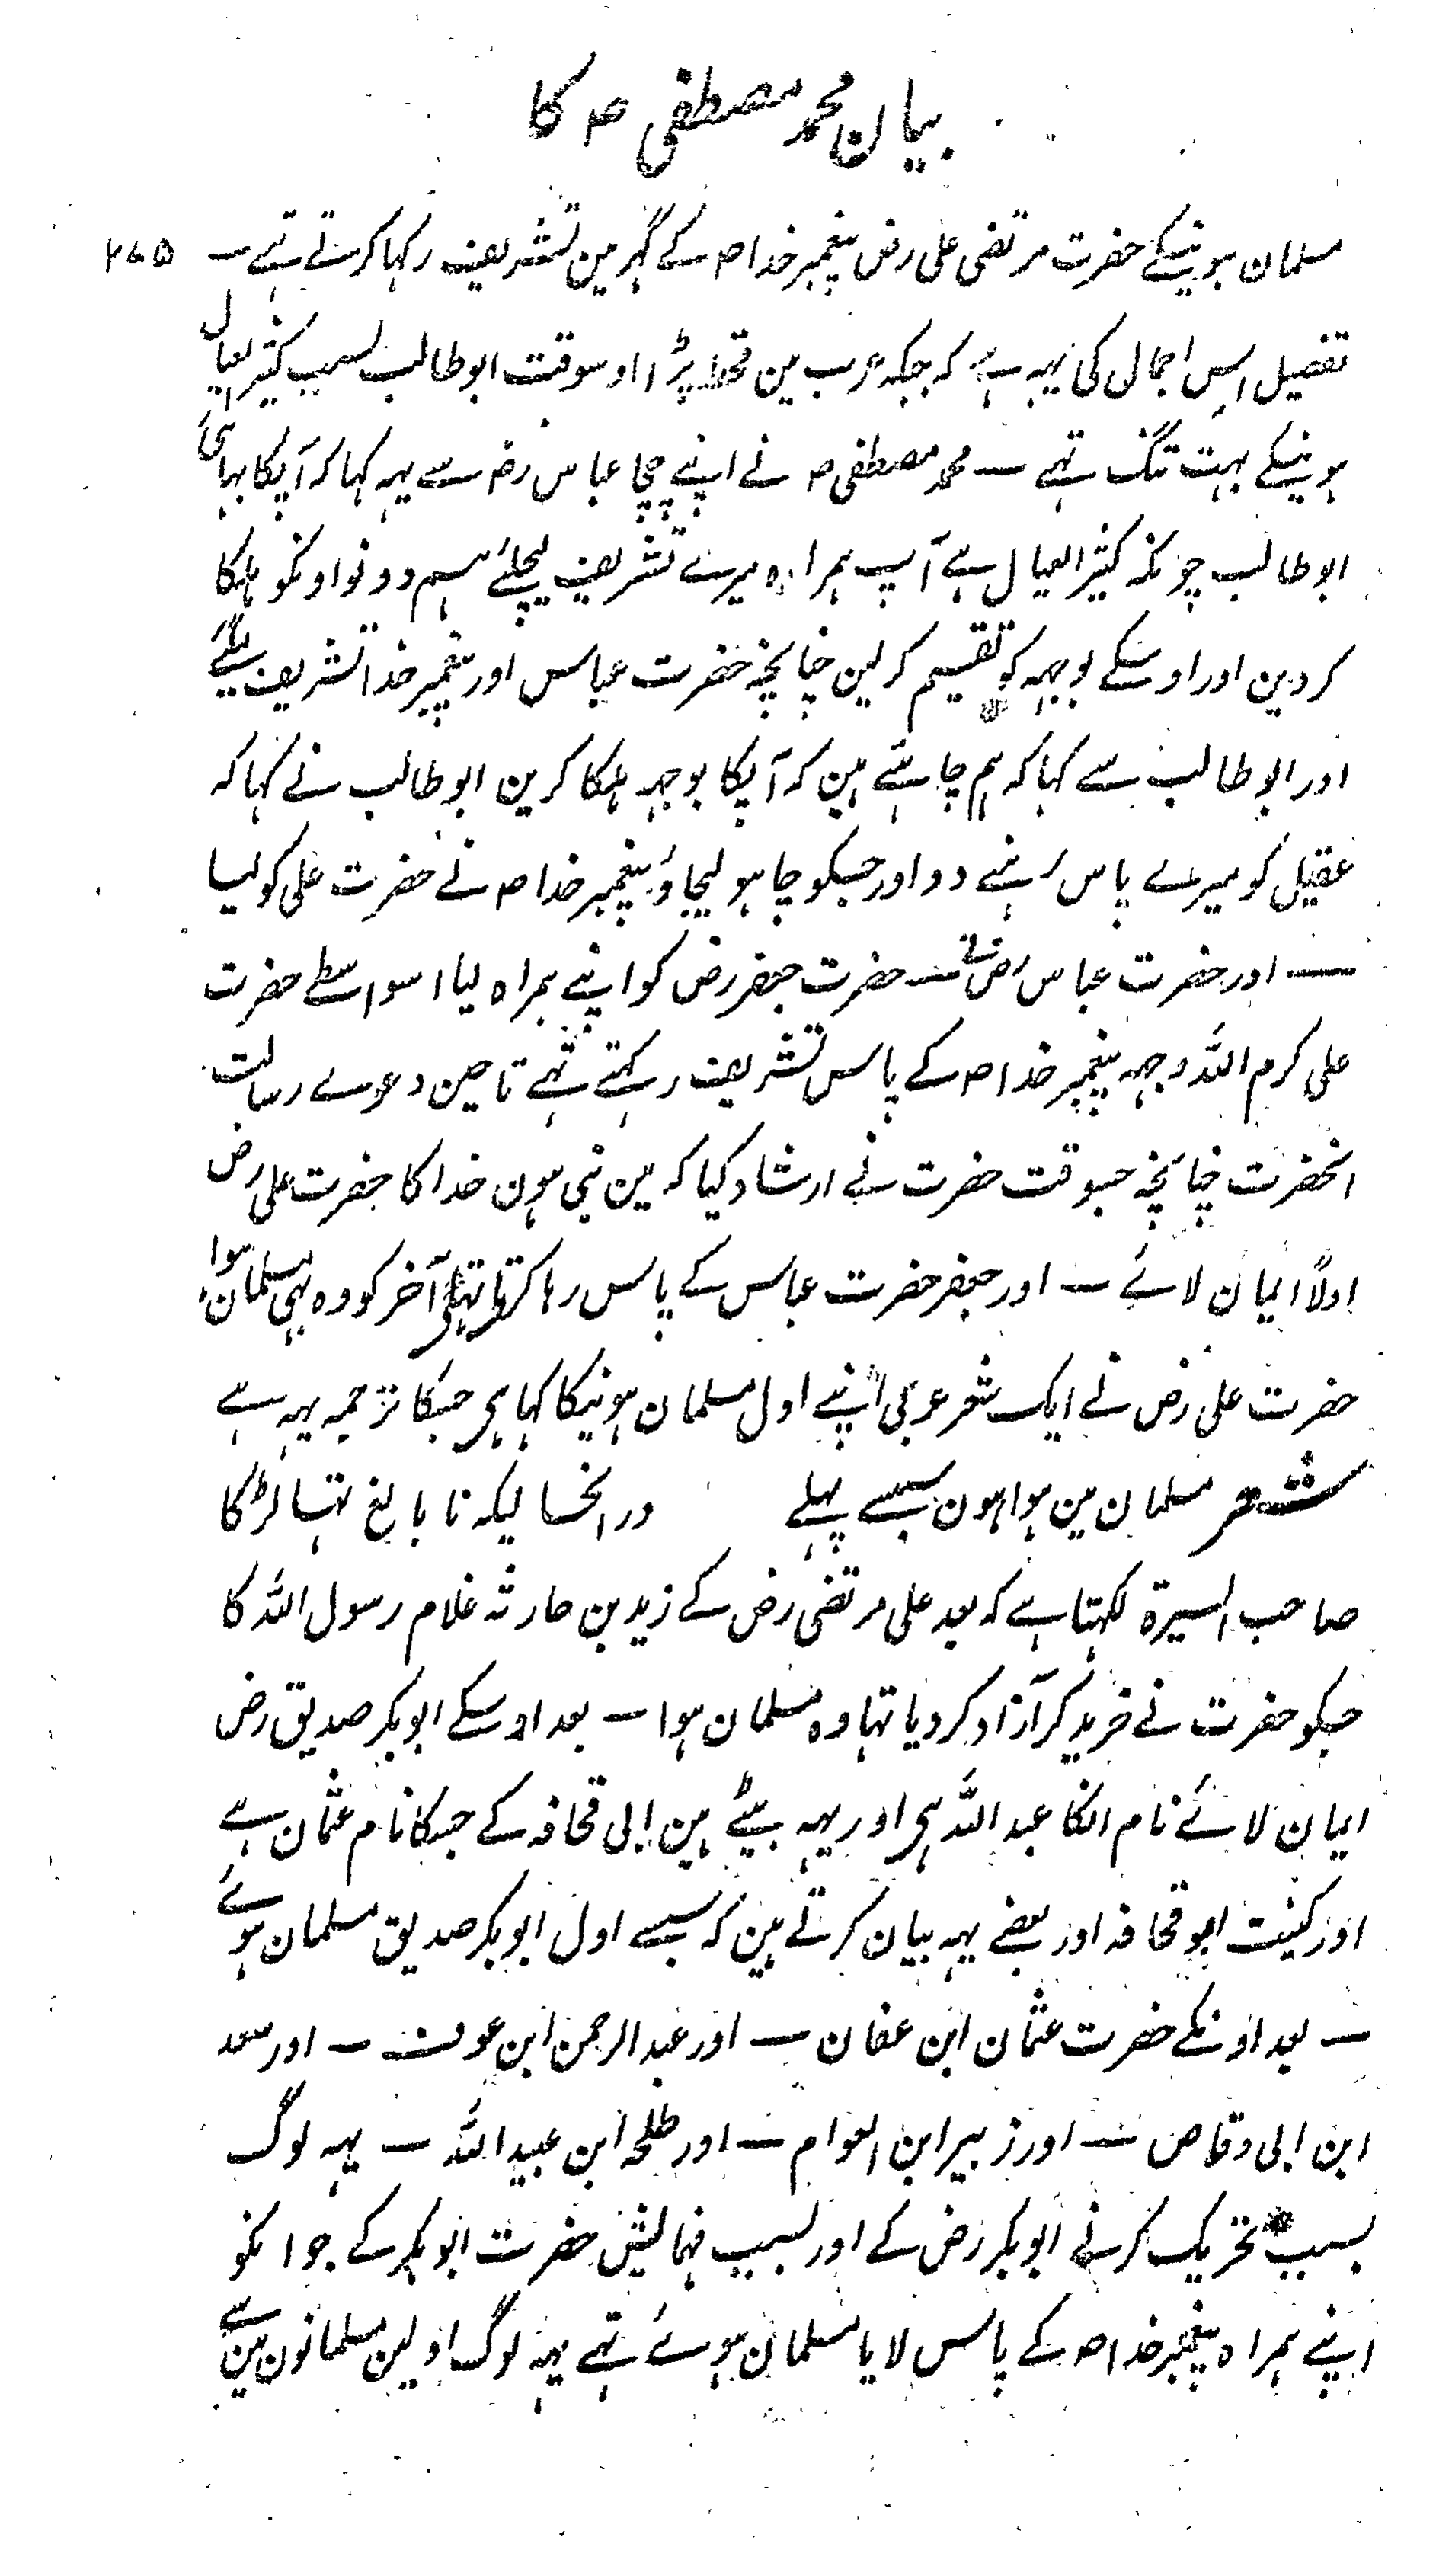 بیان محمد مصطفی ص کا
مسلمان ہونیکے حضرت مرتضی علی رض پیغمبر خدا ص کے گہر مین تشریف رکہا کرتے تہے — ۲۶۵
تفصیل اس اجمال کی یہہ ہے کہ جبکہ عرب مین قحط پڑا اوسوقت ابوطالب بسبب کثیر العیال
ہونیکے بہت تنگ تہے — محمد مصطفی ص نے اپنے چچا عباس رض سے یہہ کہا کہ آپکا بہائی
ابوطالب چونکہ کثیر العیال ہے آپ ہمراہ میرے تشریف لیچلئے ہم دونو اونکو ہلکا
کردین اور اوسکے بوجہہ کو تقسیم کرلین چنانچہ حضرت عباس اور پیغمبر خدا تشریف لیگئے
اور ابوطالب سے کہا کہ ہم چاہتے ہین کہ آپکا بوجہہ ہلکا کرین ابوطالب نے کہا کہ
عقیل کو میرے پاس رہنے دو اور جسکو چاہو لیجاؤ پیغمبر خدا ص نے حضرت علی کو لیا
— اور حضرت عباس رض نے — حضرت جعفر رض کو اپنے ہمراہ لیا اسواسطے حضرت
علی کرم اللہ وجہہ پیغمبر خدا ص کے پاس تشریف رکہتے تہے تا حین دعوے رسالت
انحضرت چنانچہ جسوقت حضرت نے ارشاد کیا کہ مین نبی ہون خدا کا حضرت علی رض
اولاً ایمان لائے — اور جعفر حضرت عباس کے پاس رہا کرتا تہا آخر کو وہ بہی مسلمان ہوا
حضرت علی رض نے ایک شعر عربی اپنے اول مسلمان ہونیکا کہا ہی جسکا ترجمہ یہہ ہے
شعر مسلمان مین ہوا ہون سبسے پہلے درانحالیکہ نابالغ تہا لڑکا
صاحب السیرۃ لکہتا ہے کہ بعد علی مرتضی رض کے زید بن حارثہ غلام رسول اللہ کا
جسکو حضرت نے خرید کر آزاد کردیا تہا وہ مسلمان ہوا — بعد اوسکے ابوبکر صدیق رض
ایمان لائے نام انکا عبد اللہ ہی اور یہہ بیٹے ہین ابی قحافہ کے جسکا نام عثمان ہے
اور کنیت ابو قحافہ اور بعضے یہہ بیان کرتے ہین کہ سبسے اول ابوبکر صدیق مسلمان ہوئے
— بعد اونکے حضرت عثمان ابن عفان — اور عبد الرحمن ابن عوف — اور سعد
ابن ابی وقاص — اور زبیر ابن العوام — اور طلحہ ابن عبید اللہ — یہہ لوگ
بسبب تحریک کرنے ابوبکر رض کے اور بسبب فہمالیش حضرت ابوبکر کے جو انکو
اپنے ہمراہ پیغمبر خدا ص کے پاس لایا مسلمان ہوئے تہے یہہ لوگ اولین مسلمانون مین سے